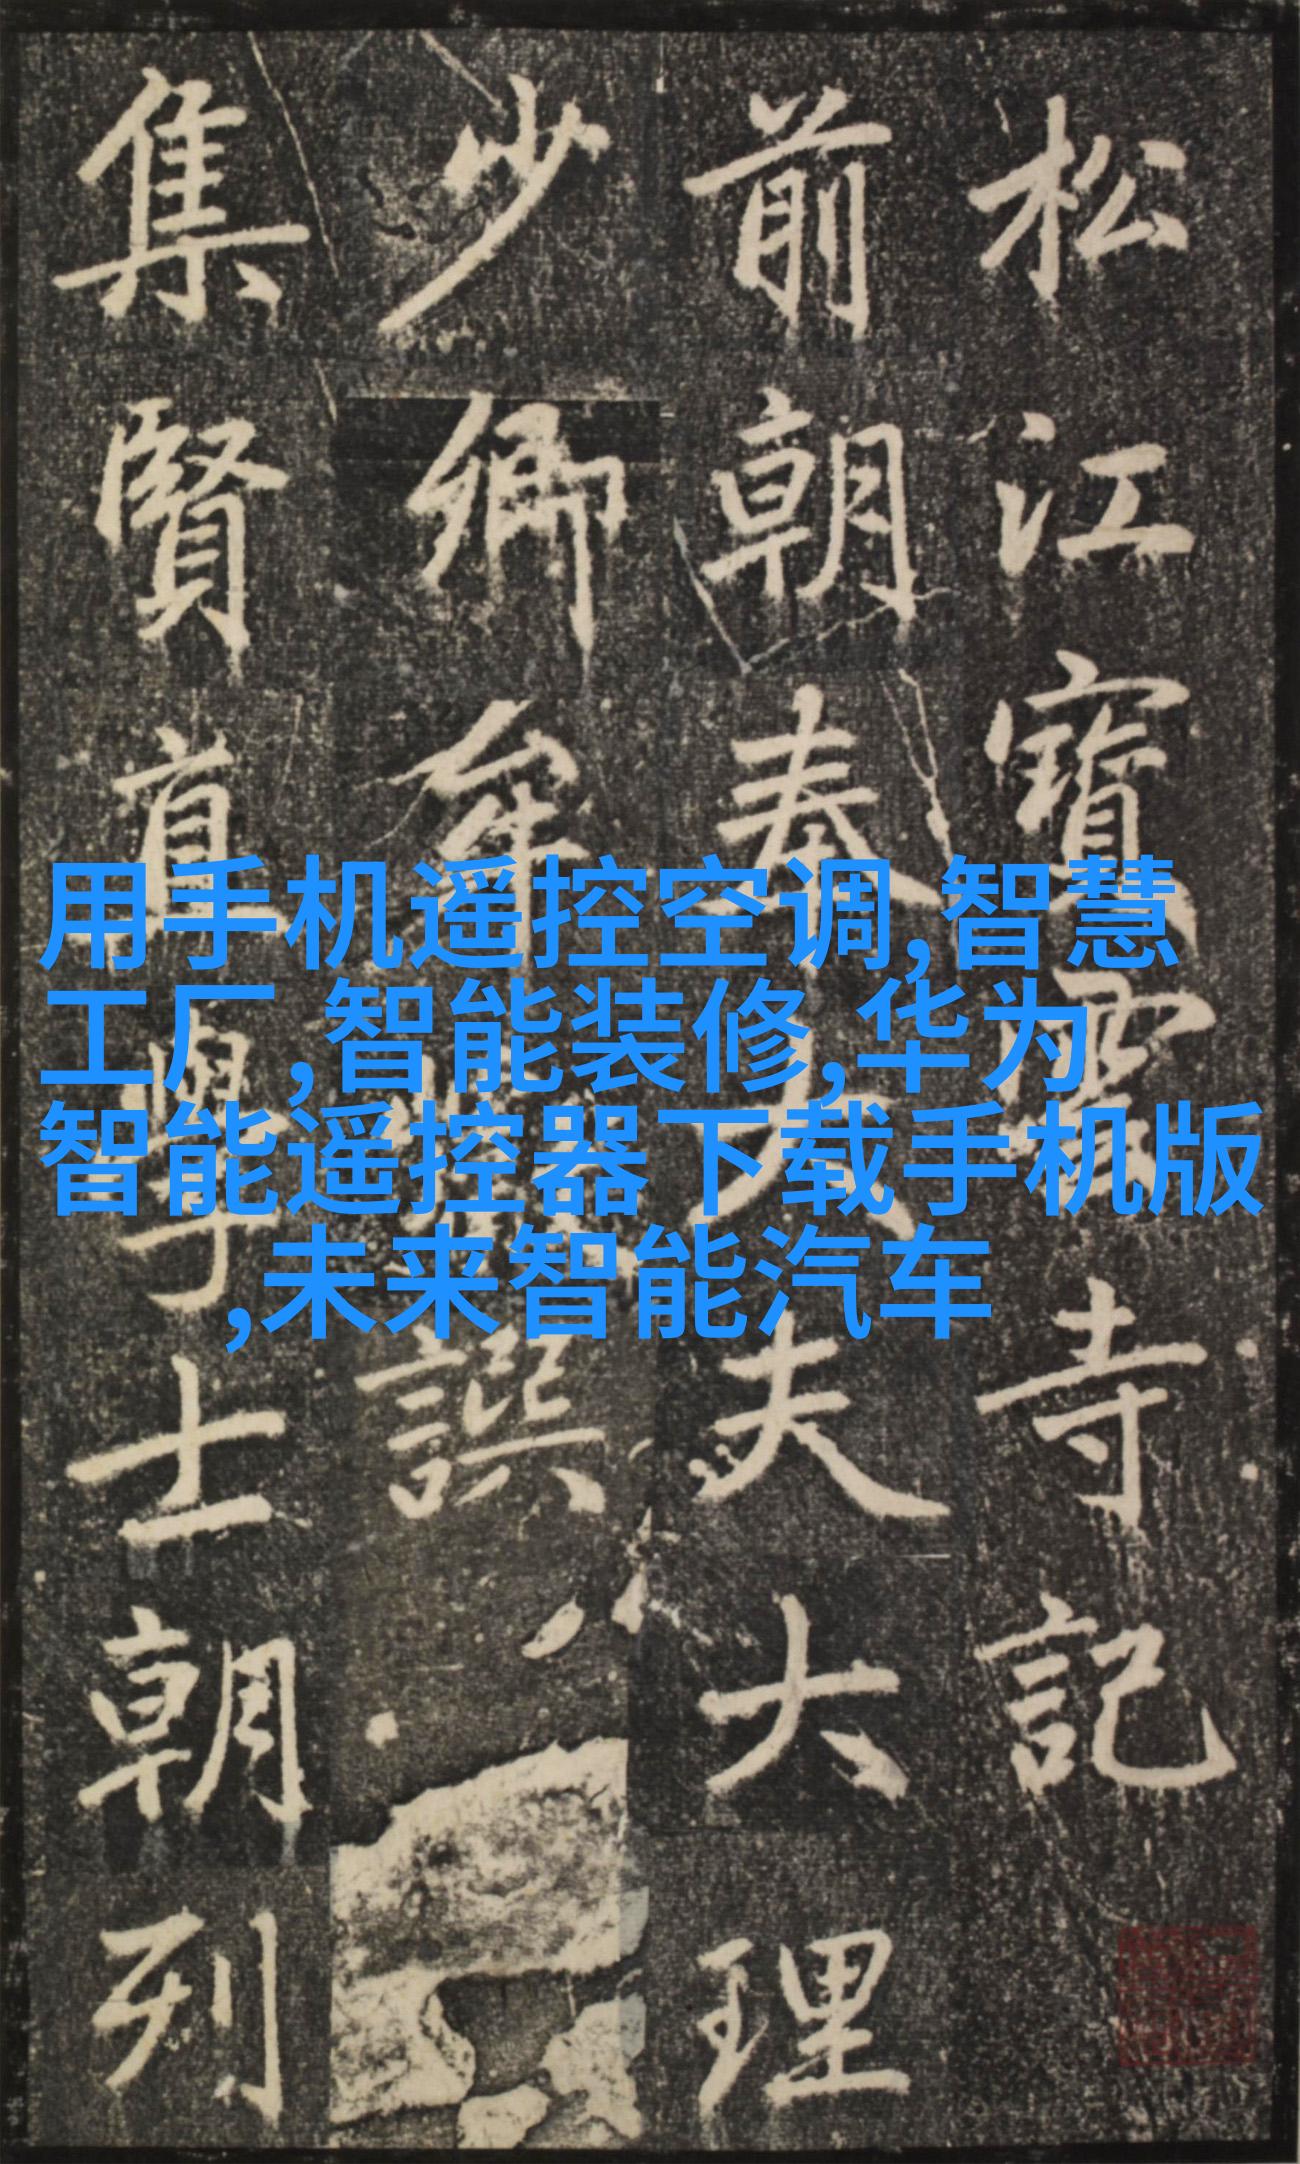 松江寶雲寺記
前朝奉大夫大理
少卿牟巘譔
集賢直學士朝列
用手机遥控空调,智慧
工厂,智能装修,华为
智能遥控器下载手机版
,未来智能汽车